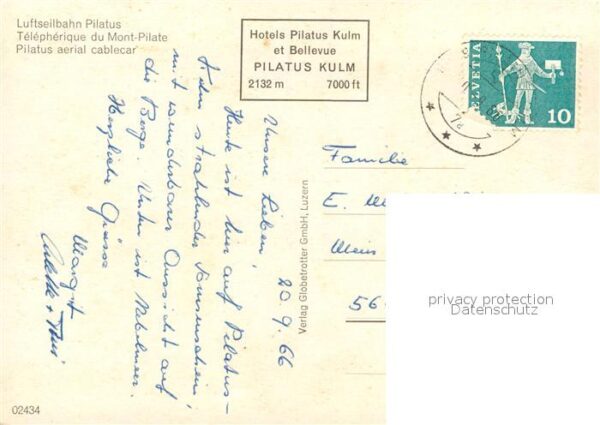 Luftseilbahn Pilatus
Téléphérique du Mont-Pilate
Pilatus aerial cablecar
Hotels Pilatus Kulm
et Bellevue
PILATUS KULM
2132 m 7000 ft
HELVETIA
10
20.9.66
Unsere Lieben,
Heute ist hier auf Pilatus-
Kulm strahlender Sonnenschein,
mit wunderbarer Aussicht auf
die Berge. Unten ist Nebelmeer.
Herzliche Grüsse
Margrit
Verlag Globetrotter GmbH, Luzern
Familie
E.
56
privacy protection
Datenschutz
02434